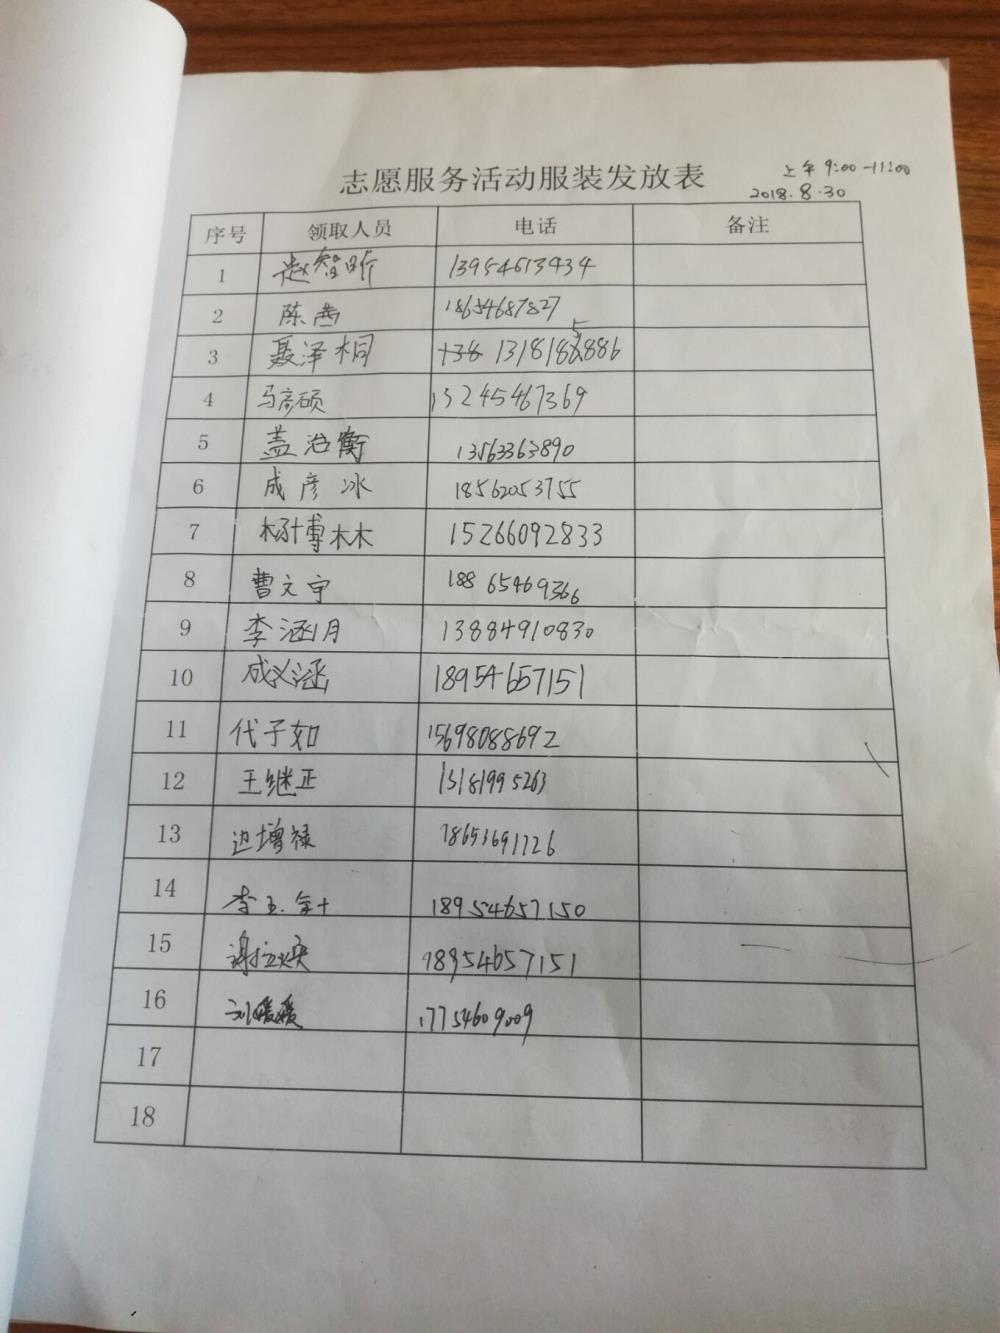 上午 9:00-11:00
志愿服务活动服装发放表
2018.8.30
序号 领取人员 电话 备注
1 赵智昕 13954613434
2 陈茜 18654687827
3 聂泽桐 1318185886
4 马彦硕 13245467369
5 盖浩衡 13563363890
6 成彦冰 18562053755
7 杨博林 15266092833
8 曹文宇 18865469366
9 李涵月 13884910830
10 成义涵 18954657151
11 代子如 15698088692
12 王继正 15181995263
13 边增禄 18653691226
14 李 18954657150
15 谢 18954657151
16 刘媛媛 17754609009
17
18